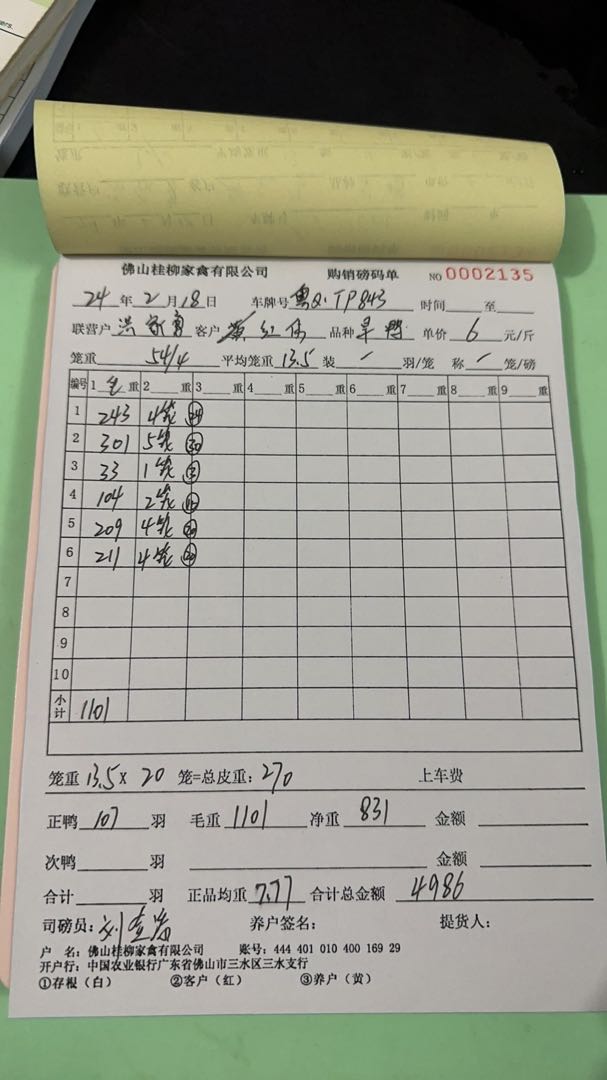 佛山桂柳家禽有限公司 购销磅码单 NO 0002135
24 年 2 月 18 日 车牌号 粤Q·TP843 时间 至
联营户 洪家 客户 红 品种 旱鸭 单价 6 元/斤
笼重 54/4 平均笼重 13.5 装 一 羽/笼 称 一 笼/磅
编号 1 毛 重 2 重 3 重 4 重 5 重 6 重 7 重 8 重 9 重
1 243 4笼 24
2 301 5笼 30
3 33 1笼 3
4 104 2笼
5 209 4笼 20
6 211 4笼 20
7
8
9
10
小计 1101
笼重 13.5 x 20 笼=总皮重: 270 上车费
正鸭 107 羽 毛重 1101 净重 831 金额
次鸭 羽 金额
合计 羽 正品均重 7.77 合计总金额 4986
司磅员: 刘 养户签名: 提货人:
户 名: 佛山桂柳家禽有限公司 账号: 444 401 010 400 169 29
开户行: 中国农业银行广东省佛山市三水区三水支行
①存根（白） ②客户（红） ③养户（黄）